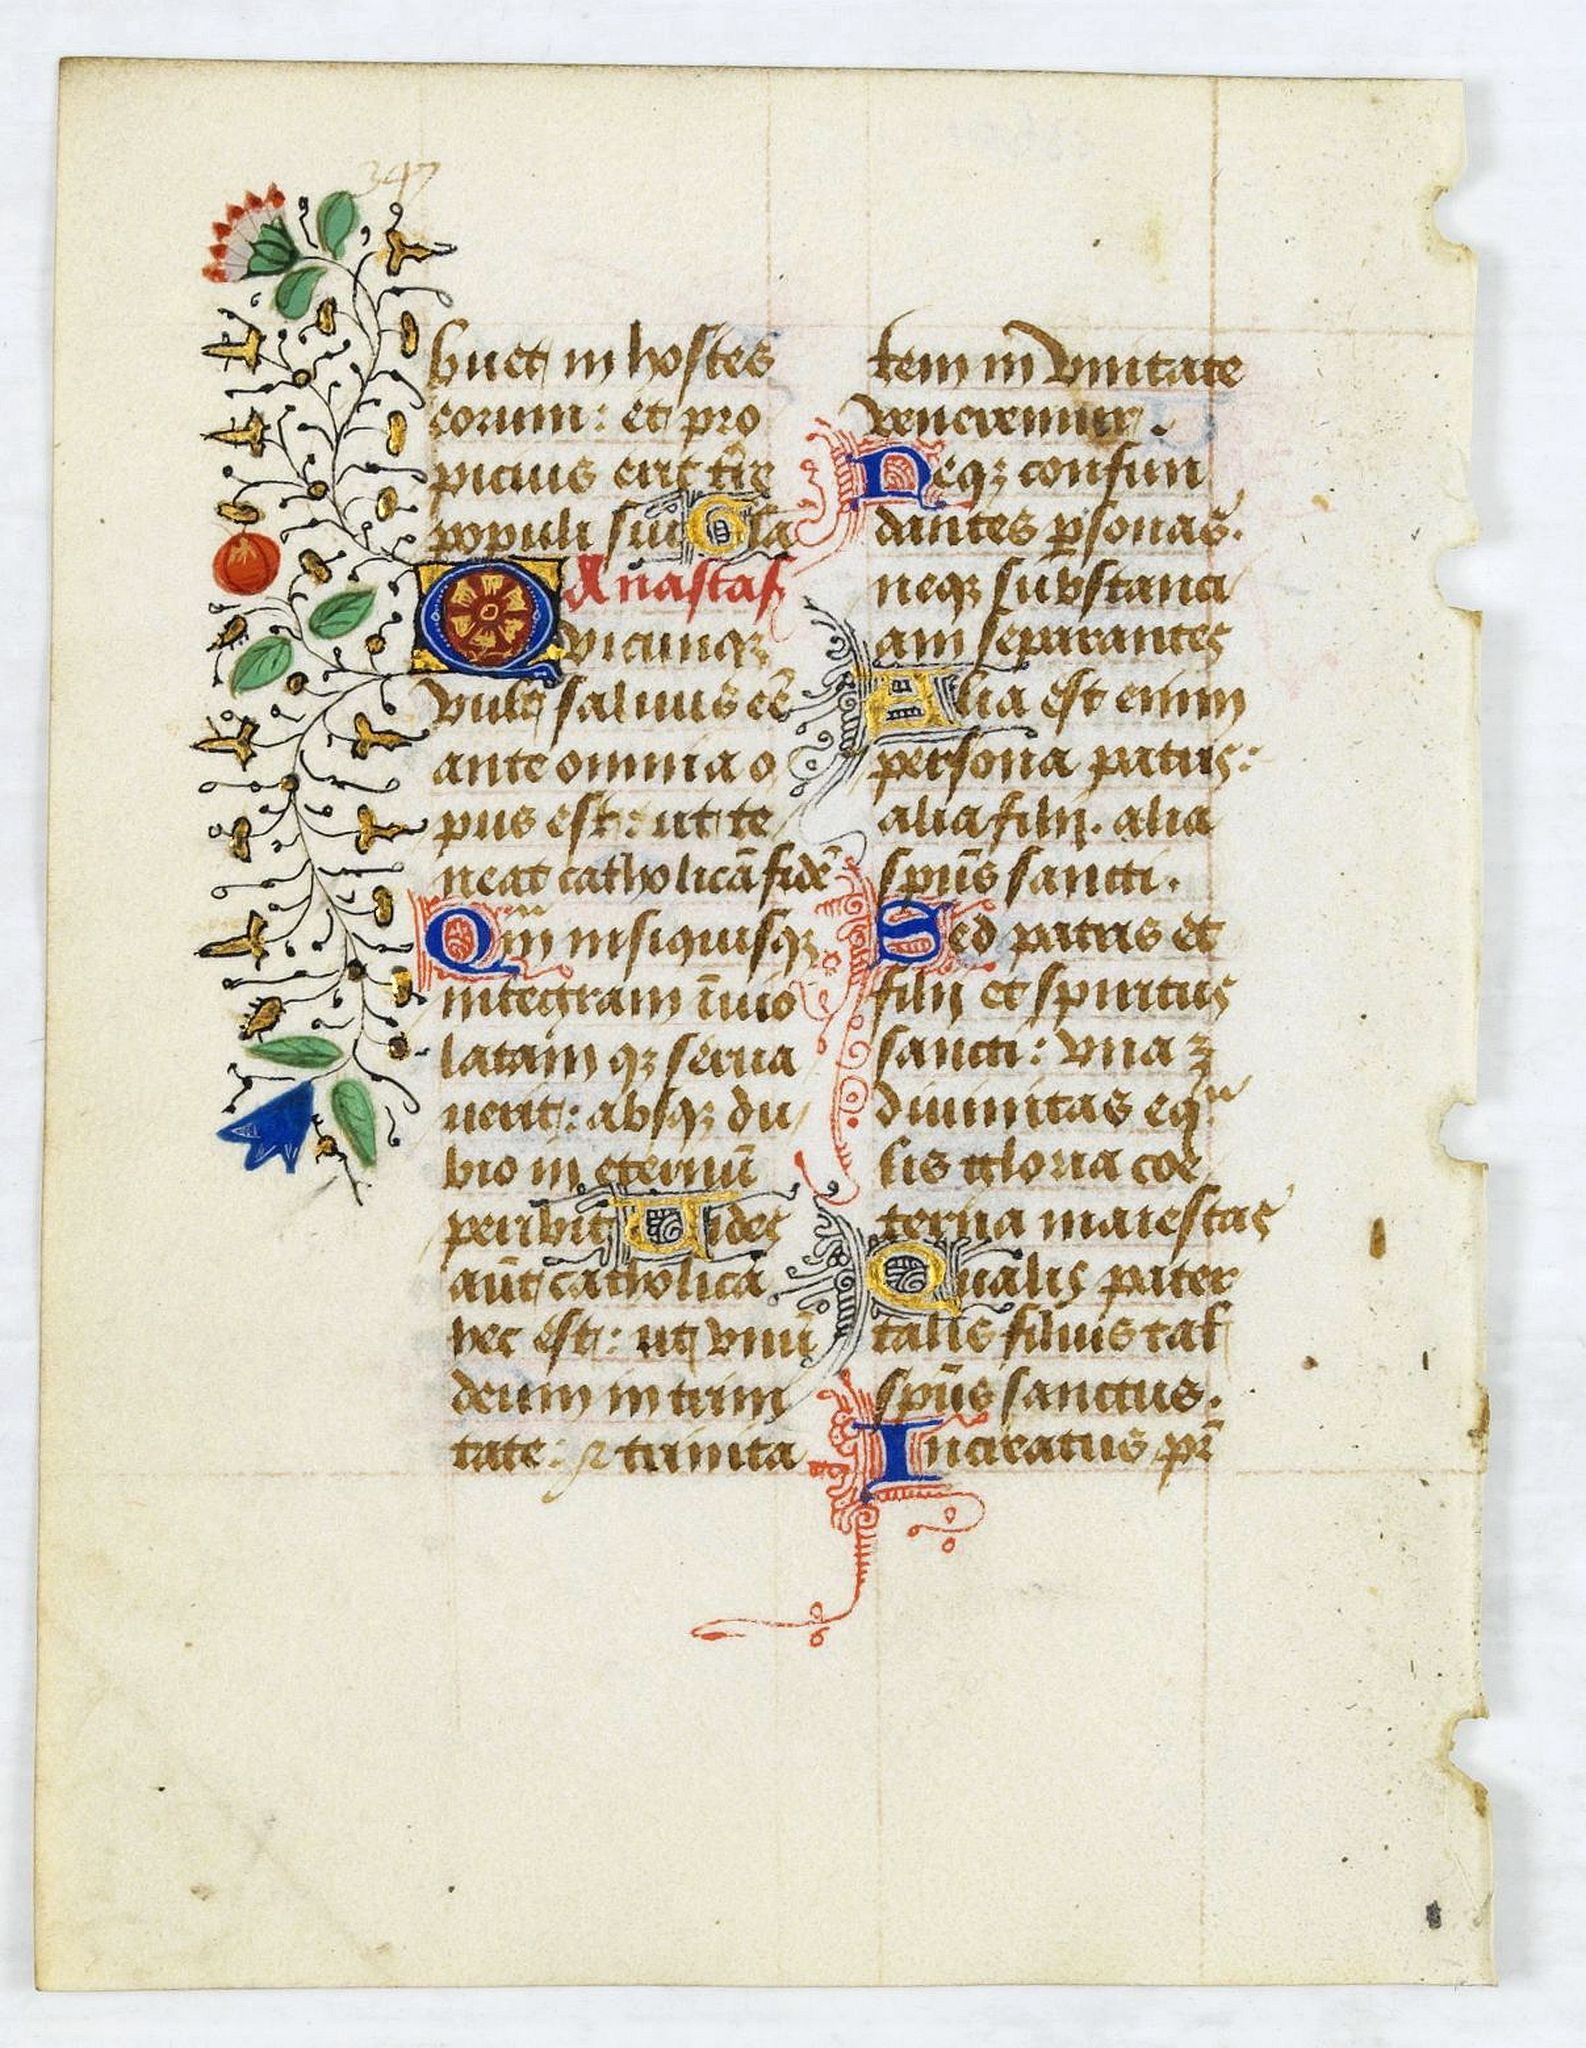 347
buet in hostes
eorum: et pro
picius erit t̄re
populi sui Gla
Anastas
Quicunqꝫ
vult saluus eē
ante omnia o
pus est: ut te
neat catholicā fidē
Qm̄ nisi quisqꝫ
integram īuio
latam qꝫ serua
uerit: absqꝫ du
bio in eternū
peribit Fides
aūt catholica
hec est: ut vnū
deum in trini
tate: ⁊ trinita
tem in vnitate
veneremur.
Neqꝫ confun
dantes ꝑsonas.
neqꝫ substanci
am separantes
Alia est enim
persona patris:
alia filij. alia
spūs sancti.
Sed patris et
filij et spiritus
sancti: vna ꝫ
diuinitas eqᵃ
lis gloria coe
terna maiestas
Qualis pater
talis filius tal
spūs sanctus.
Increatus pr̄